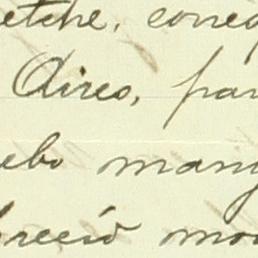 etche, coneg
Aires, par
ebo mang
preció mo